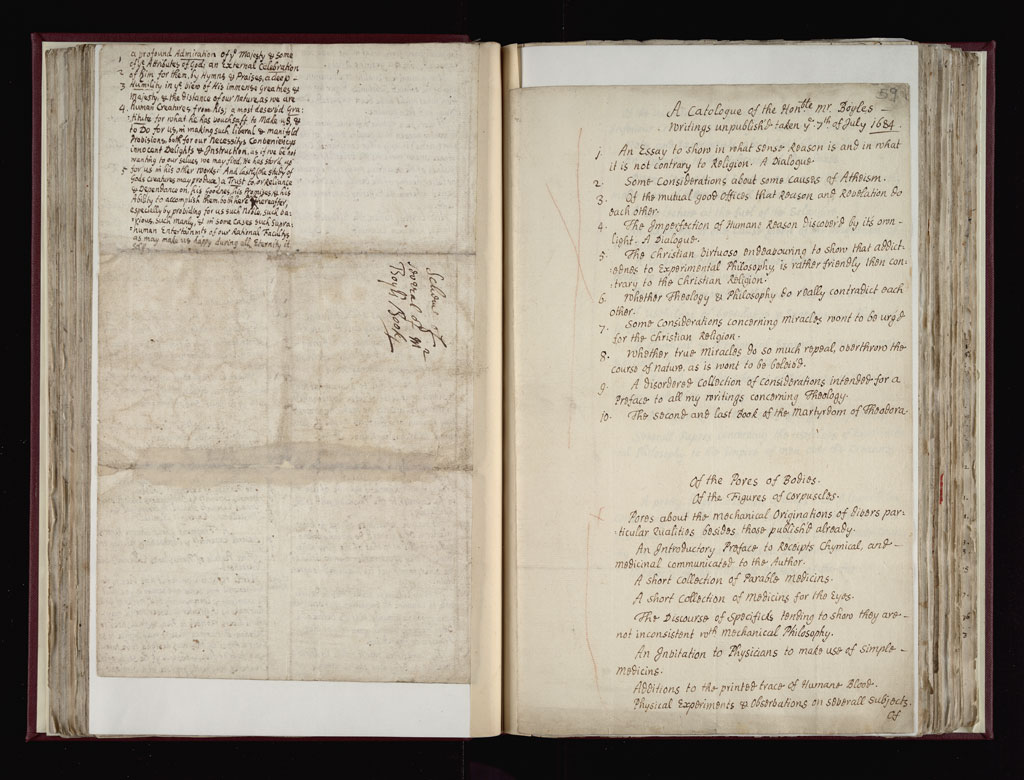 a profound Admiration of yᵉ Majesty & some
1 of yᵉ Attributes of God; an External Celebration
2 of him for them, by Hymns & Praises, a deep
3 Humility in yᵉ View of His immense Greatnes &
Majesty, & the Distance of our Nature, as we are
4 Human Creatures from his; a most deserv'd Gra:
:titute for what he has vouchsaft to Make us, &
to Do for us, in making such liberal & manifold
Provisions, both for our Necessitys Conveniencys
innocent Delights & Instruction, as if we be not
wanting to our selves, we may find, He has stor'd up
5 for us in his other Works: And lastly, (the study of
Gods Creatures may produce) a Trust to, or Reliance
& Dependance on, his Goodnes, his Promises, & his
Ability to accomplish them both here & hereafter,
especially by providing for us such Noble, such va:
:rious, such Manly, & in some cases such Supra:
:human Entertainments of our Rational Facultys
as may make us happy during all Eternity it
self.
Scheme of
several of Mr
Boyls Books
59
A Catologue of the Honble Mr. Boyles
Writings unpublish'd taken yᵉ 7th of July 1684.
1. An Essay to show in what sense Reason is and in what
it is not contrary to Religion. A Dialogue.
2. Some Considerations about some causes of Atheism.
3. Of the mutual good offices that Reason and Revelation do
each other.
4. The Imperfection of Humane Reason Discover'd by its own
light. A Dialogue.
5. The Christian Virtuoso endeavouring to show that addict:
:ednes to Experimental Philosophy is rather friendly then con:
:trary to the Christian Religion.
6. Whether Theology & Philosophy do really contradict each
other.
7. Some Considerations concerning Miracles wont to be urg'd
for the Christian Religion.
8. Whether true Miracles do so much repeal, overthrow the
course of Nature, as is wont to be beleiv'd.
9. A disordered Collection of Considerations intended for a
Preface to all my writings concerning Theology.
10. The second and last Book of the Martyrdom of Theodora.
Of the Pores of Bodies.
Of the Figures of Corpuscles.
Pores about the Mechanical Originations of divers par:
:ticular Qualities besides those publish'd already.
An Introductory Preface to Receipts Chymical, and
medicinal communicated to the Author.
A short Collection of Parable Medicins.
A short Collection of Medicins for the Eyes.
The Discourse of Specificks tending to show they are
not inconsistent wth Mechanical Philosophy.
An Invitation to Physicians to make use of simple
medicins.
Additions to the printed trace of Humane Blood.
Physical Experiments & Observations on severall subjects.
Of